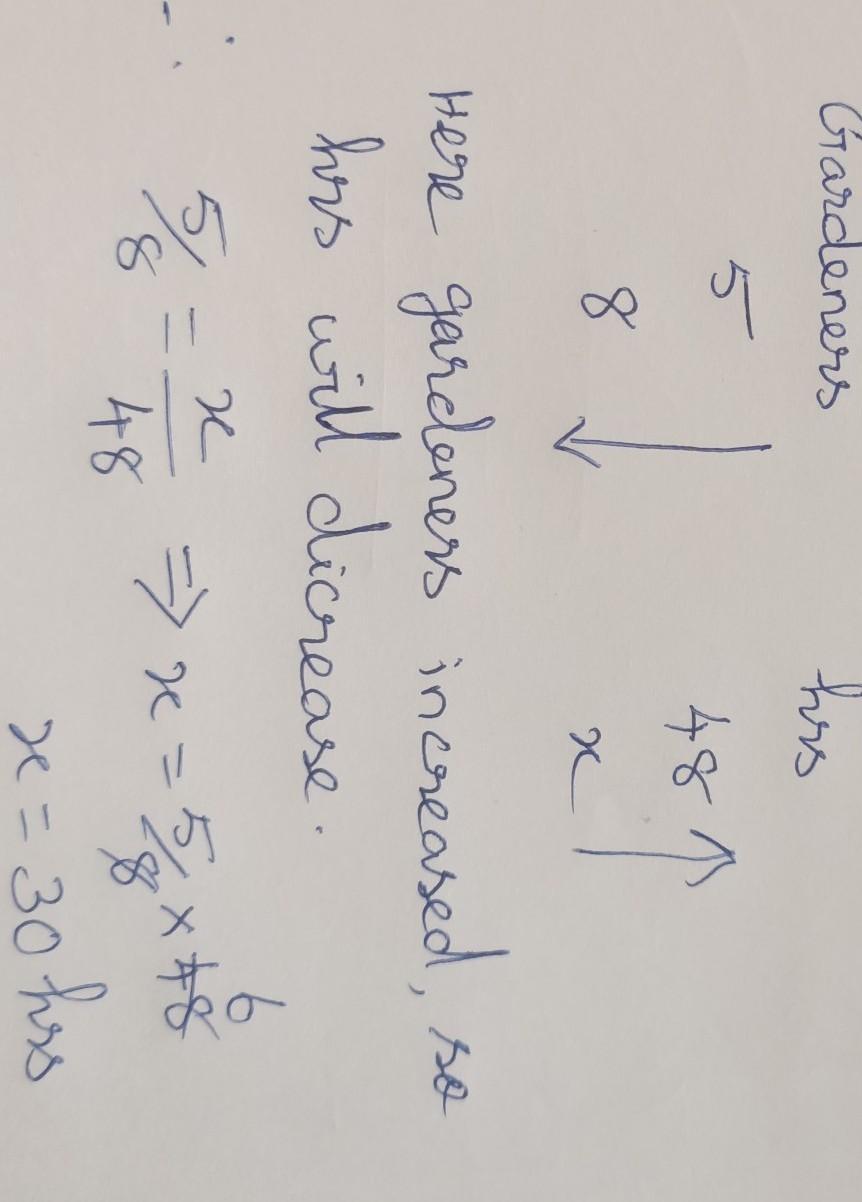 Gardeners hrs
5 ↓ 48 ↑
8 x
Here gardeners increased, so
hrs will dicrease.
∴ 5/8 = x/48 ⇒ x = 5/8 × 48 6
x = 30 hrs